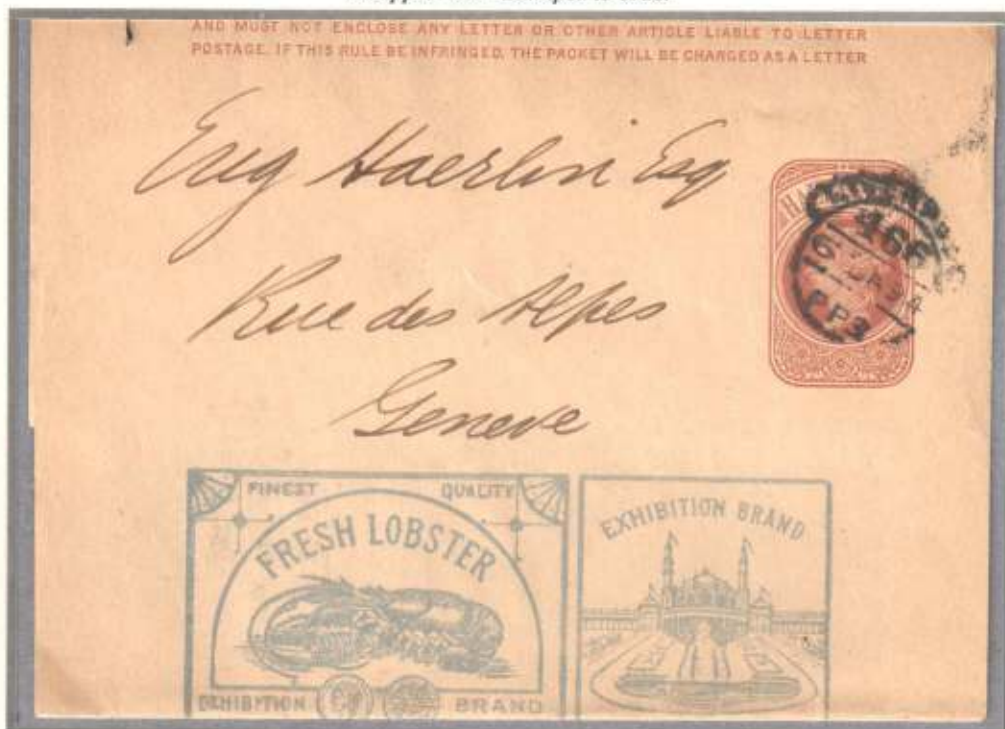 AND MUST NOT ENCLOSE ANY LETTER OR OTHER ARTICLE LIABLE TO LETTER
POSTAGE. IF THIS RULE BE INFRINGED, THE PACKET WILL BE CHARGED AS A LETTER
Eug Haerlin Esq
Rue des Alpes
Geneve
466
PP3
FINEST QUALITY
FRESH LOBSTER
EXHIBITION BRAND
EXHIBITION BRAND